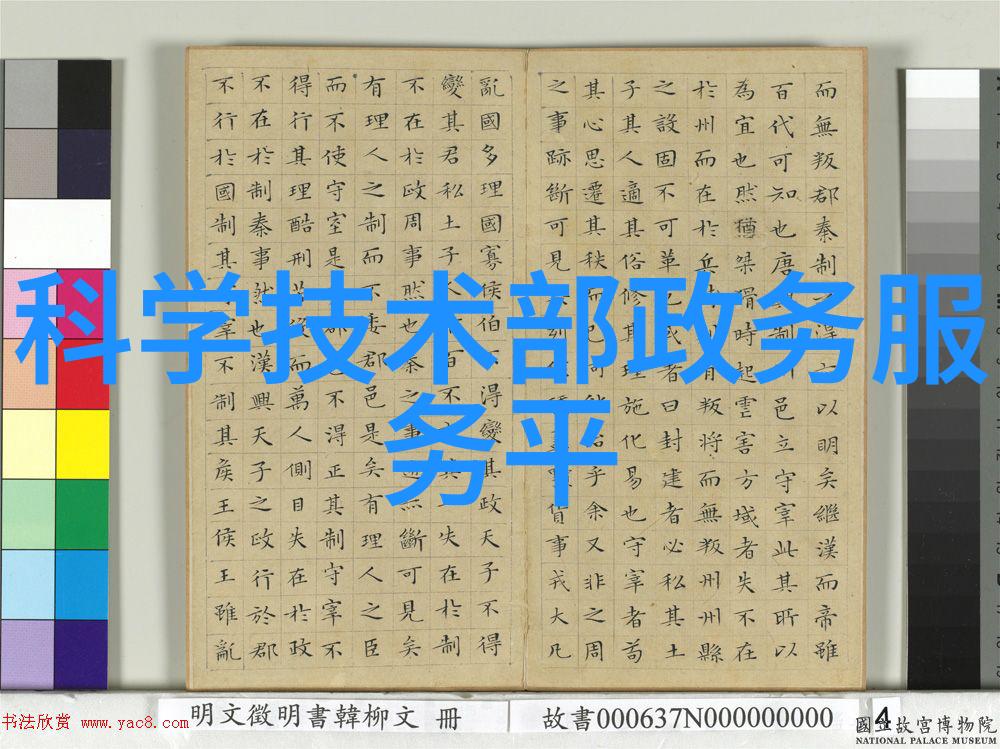 科学技术部政务服
务平
而無叛郡秦制之得亦以明矣繼漢而帝雖
百代可知也唐制邑立守宰此其所以
為宜也然猶桀猾時起虐害方域者失不在
於州而在於兵則有叛將而無叛州州縣
之設固不可革也或者曰封建者必私其土
子其人適其俗修其理施化易也守宰者苟
其心思遷其秩而已何能乎余又非之周
之事跡斷可見列貨事戎大凡
亂國多理國寡侯伯不得變其政天子不得
變其君私土子人百不失在於制
不在於政周事然也秦之事跡斷可見矣
有理人之制而不委郡邑是矣有理人之臣
而不使守宰是郡不得正其制守宰不
得行其理酷刑苦役而萬人側目失在於政
不在於制秦事然也漢興天子之政行於郡
不行於國制其宰不制其侯王侯王雖亂
书法欣赏 www.yac8.com
明文徵明書韓柳文 冊
故書000637N000000000
4
國立故宮博物院
NATIONAL PALACE MUSEUM